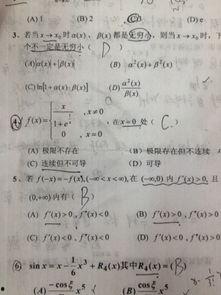 (A) 1 (B) 2 (C) 3 (D) e
3、若当x→x₀时α(x)、β(x)都是无穷小,则当x→x₀时,下
个不一定是无穷小( D )
(A)|α(x)|+|β(x)| (B) α²(x)+β²(x)
(C) ln[1+α(x)·β(x)] (D) α²(x)/β(x)
4、f(x)={ x/(1+e^ , x≠0
0 x=0 ,在x=0处( C )
(A) 极限不存在 (B) 极限存在但不连续
(C) 连续但不可导 (D) 可导
5、若f(-x)=-f(x),(-∞<x<∞),在(-∞,0)内f'(x)>0, 且
(0,+∞)内有( B )
(A) f'(x)>0,f''(x)<0 (B) f'(x)>0,
(C) f'(x)<0,f''(x)<0 (D) f'(x)<0,
⑥ sin x = x - 1/6 x³ + R₄(x)其中R₄(x)=( B )
(A) -cosξ x⁵ (B) cosξ x⁵